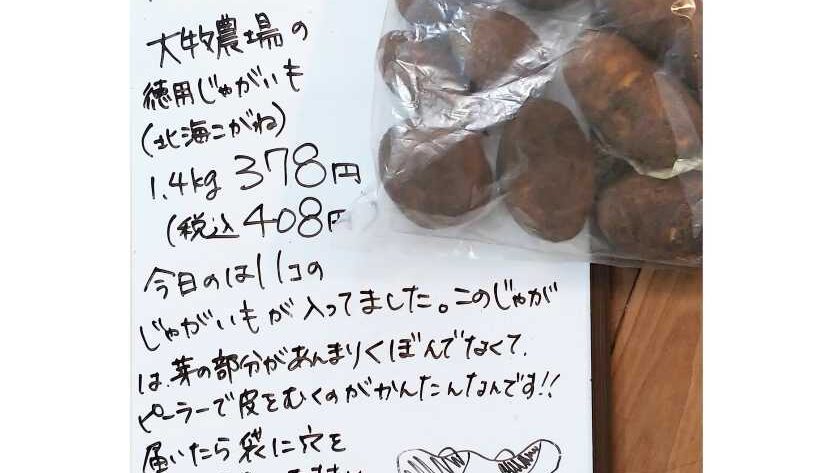 大牧農場の
徳用じゃがいも
(北海こがね)
1.4kg 378円
(税込408円
今日のは11コの
じゃがいもが入ってました。このじゃが
は、芽の部分があんまりくぼんでなくて、
ピーラーで皮をむくのがかんたんなんです!!
届いたら袋に穴を